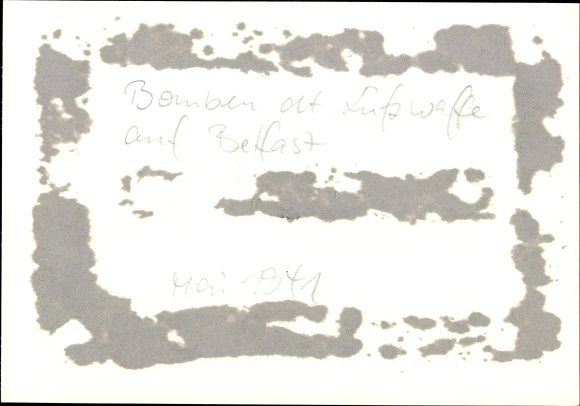 Bomben dt. Luftwaffe
auf Belfast
Mai 1941